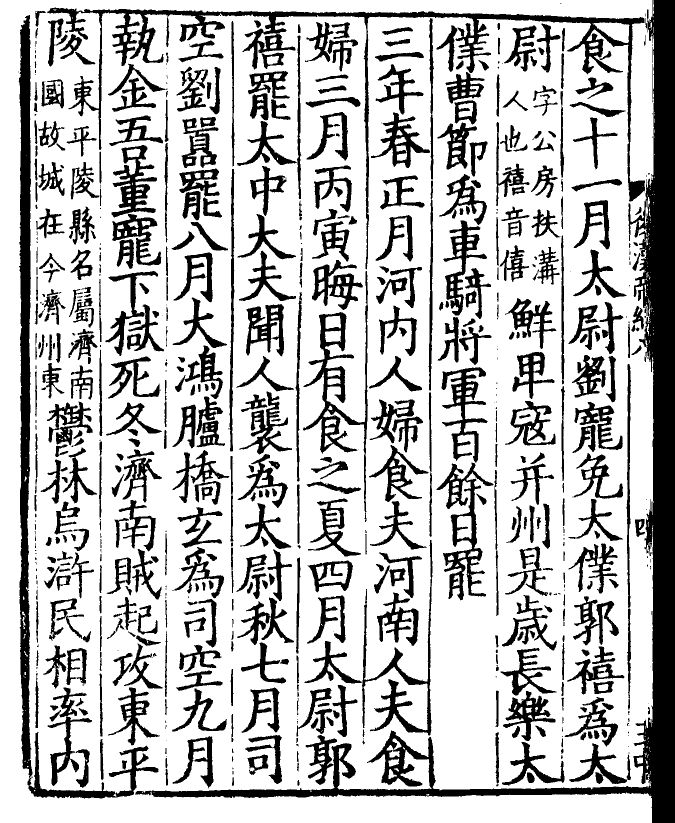 食之十一月太尉劉寵免太僕郭禧爲太
尉字公房扶溝人也禧音僖鮮卑寇并州是歲長樂太
僕曹節爲車騎將軍百餘日罷
三年春正月河内人婦食夫河南人夫食
婦三月丙寅晦日有食之夏四月太尉郭
禧罷太中大夫聞人襲爲太尉秋七月司
空劉囂罷八月大鴻臚橋玄爲司空九月
執金吾董寵下獄死冬濟南賊起攻東平
陵東平陵縣名屬濟南國故城在今濟州東鬱林烏滸民相率内